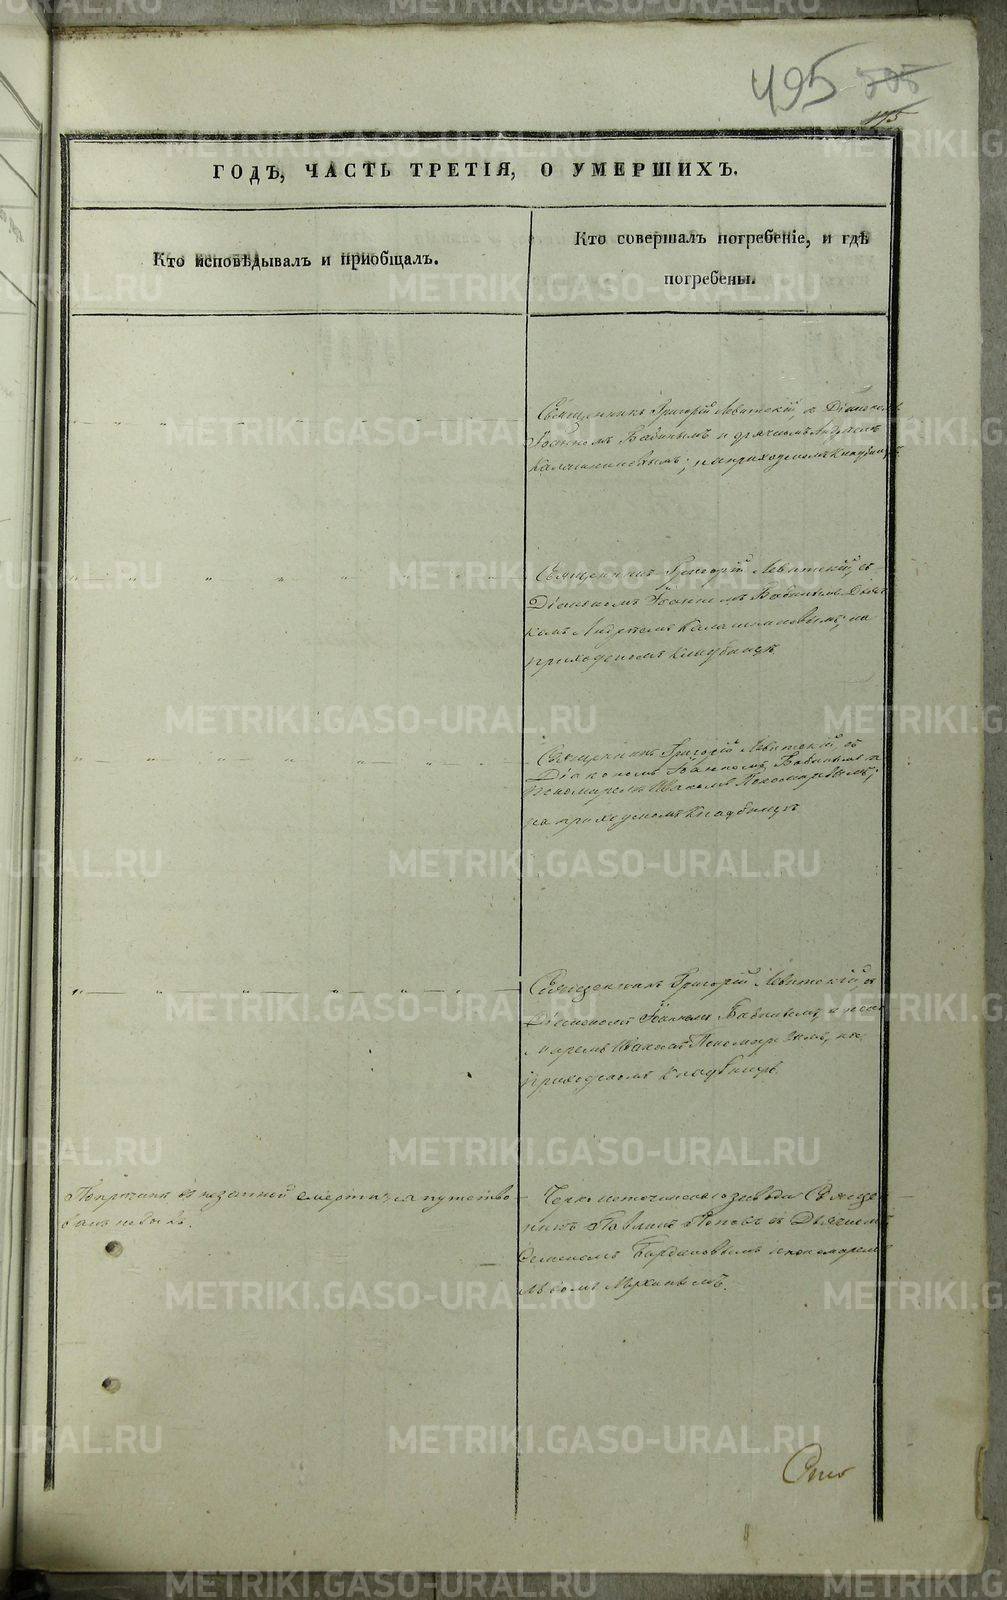 495 505
175
ГОДЪ, ЧАСТЬ ТРЕТІЯ, О УМЕРШИХЪ.
Кто исповѣдывалъ и приобщалъ.
Кто совершалъ погребеніе, и гдѣ
погребены.
Священникъ Григорій Левитскій, съ Діакономъ
Іоанномъ Бабинымъ и дьячкомъ Андреемъ
Калашниковымъ; на приходскомъ кладбищѣ
Священникъ Григорій Левитскій, съ
Діакономъ Іоанномъ Бабинымъ Дьяч-
комъ Андреемъ Калашниковымъ; на
приходскомъ кладбищѣ
Священникъ Григорій Левитскій, съ
Діакономъ Іоанномъ Бабинымъ и
Пономаремъ Пономаревымъ;
на приходскомъ кладбищѣ
Священникъ Григорій Левитскій съ
Діакономъ Іоанномъ Бабинымъ, и поно-
маремъ Пономаревымъ, на
приходскомъ кладбищѣ.
По причинѣ внезапной смерти напутство-
ванъ не былъ.
завода Священ-
никъ Павелъ Поповъ съ Дьячкомъ
Семеномъ и пономаремъ
METRIKI.GASO-URAL.RU